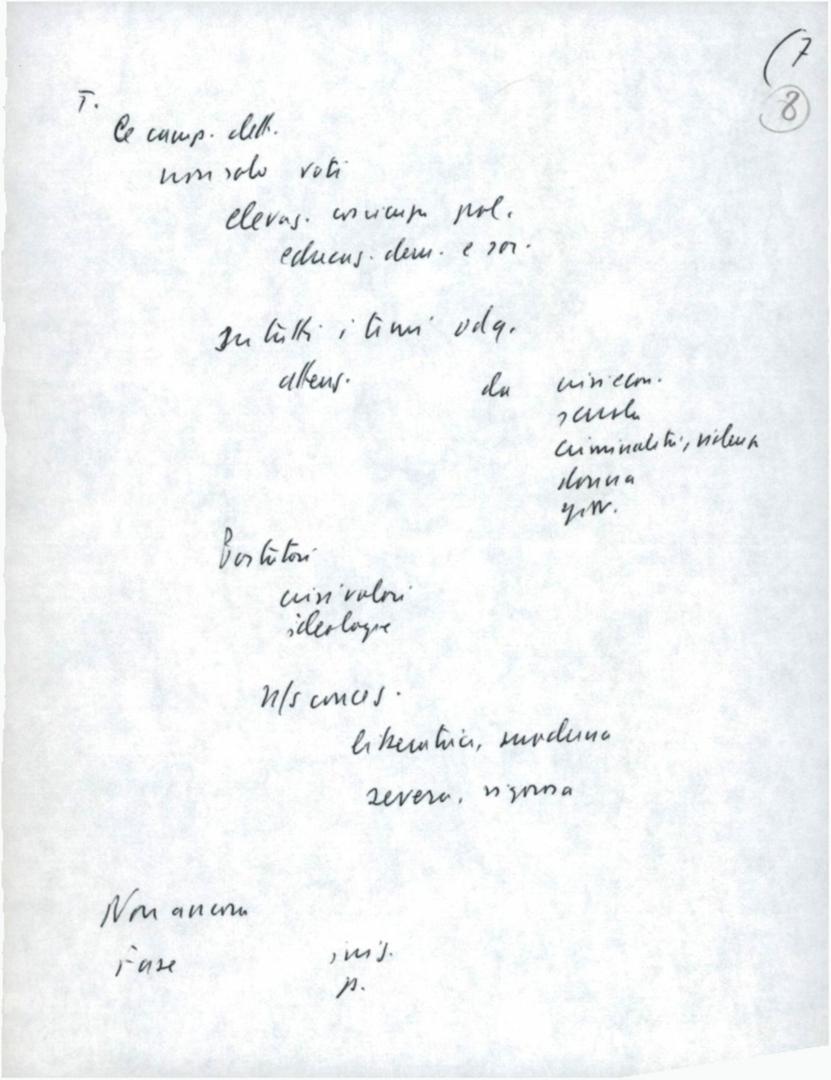 (7
8
T.
Le camp. elett.
non solo voti
elevaz. coscienza pol.
educaz. dem. e soc.
su tutti i temi odg.
attenz. da crisi econ.
scuola
criminalità, violenza
donna
giov.
crisi valori
ideologie
n/s concez.
liberatrice, moderna
severa, rigorosa
Non ancora
Fase iniz.
p.